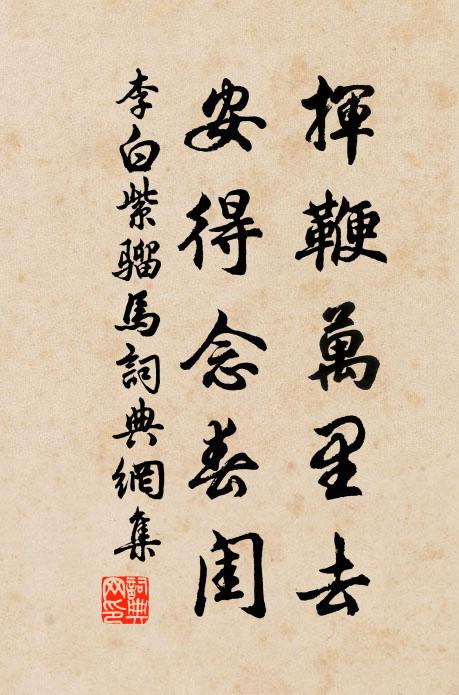 揮鞭萬里去
安得念春閨
李白紫骝馬詞典網集
詞典
网印